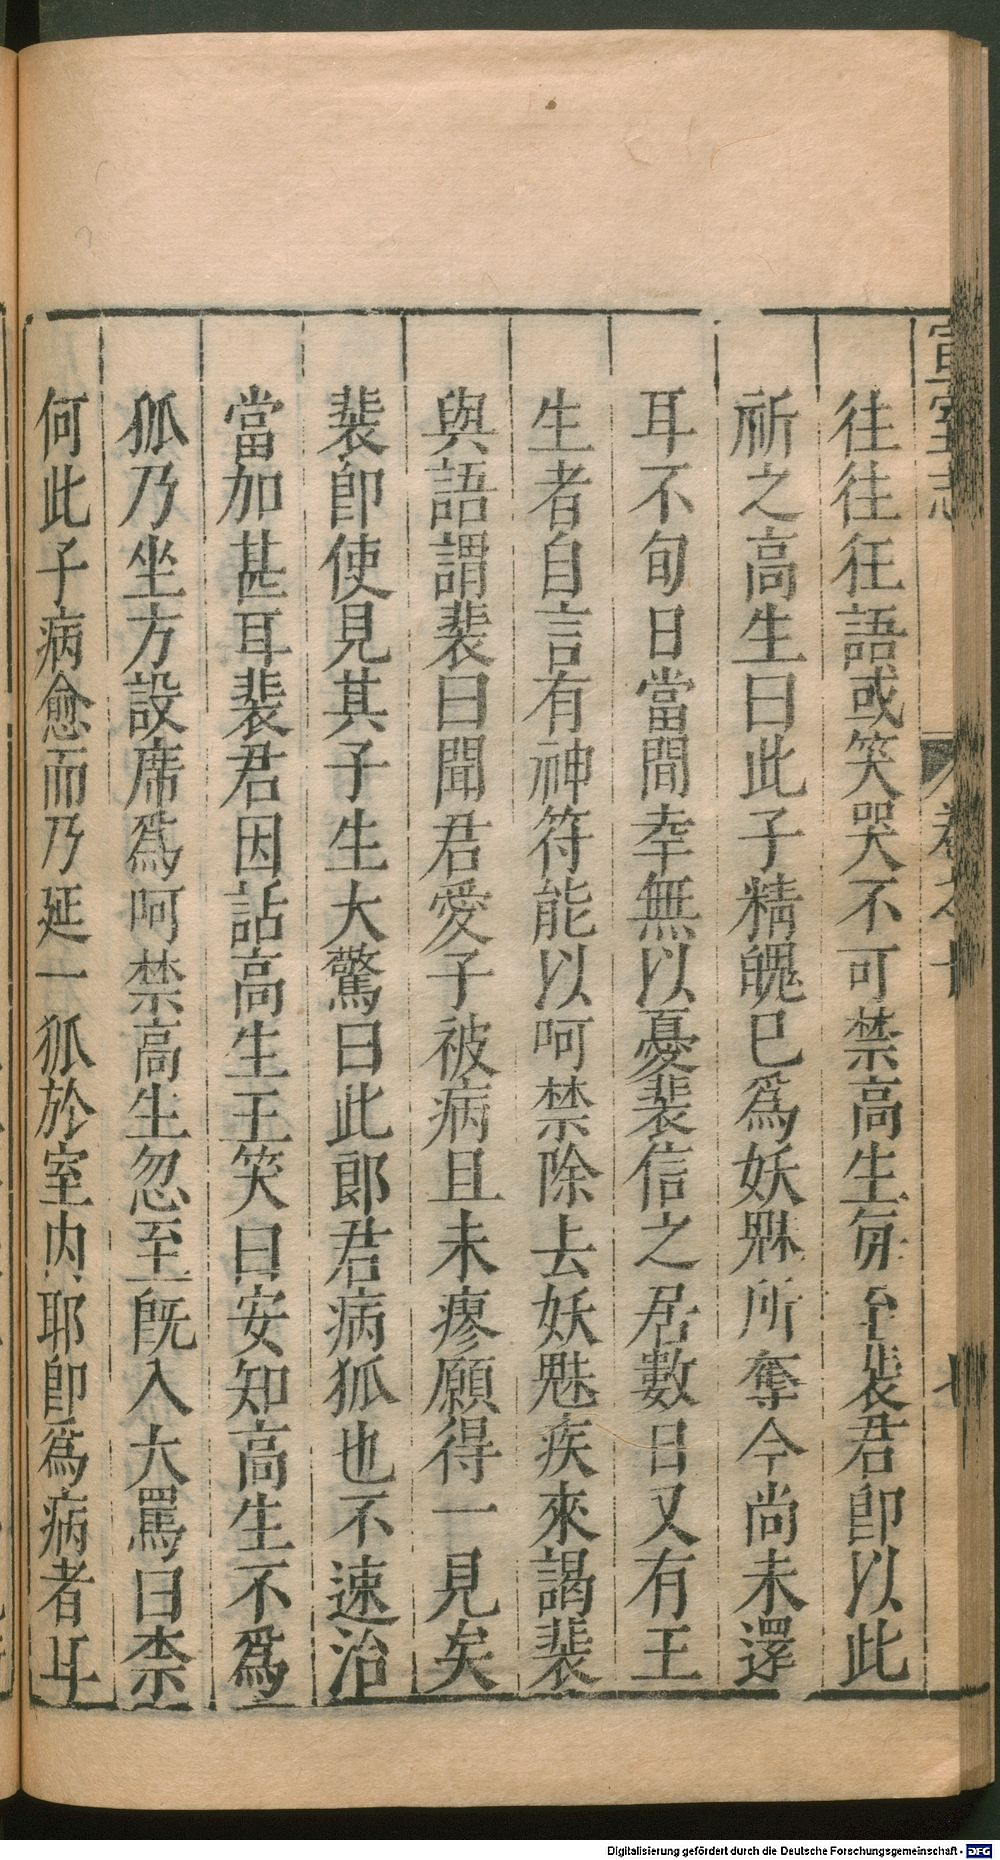 往往狂語或笑哭不可禁高生每至裴君即以此
祈之高生曰此子精魄已爲妖魅所奪今尚未還
耳不旬日當間幸無以憂裴信之居數日又有王
生者自言有神符能以呵禁除去妖魅疾來謁裴
與語謂裴曰聞君愛子被病且未瘳願得一見矣
裴即使見其子生大驚曰此郎君病狐也不速治
當加甚耳裴君因話高生王笑曰安知高生不爲
狐乃坐方設席爲呵禁高生忽至既入大罵曰柰
何此子病愈而乃延一狐於室内耶即爲病者耳
宣室志
卷之十
七
Digitalisierung gefördert durch die Deutsche Forschungsgemeinschaft - DFG